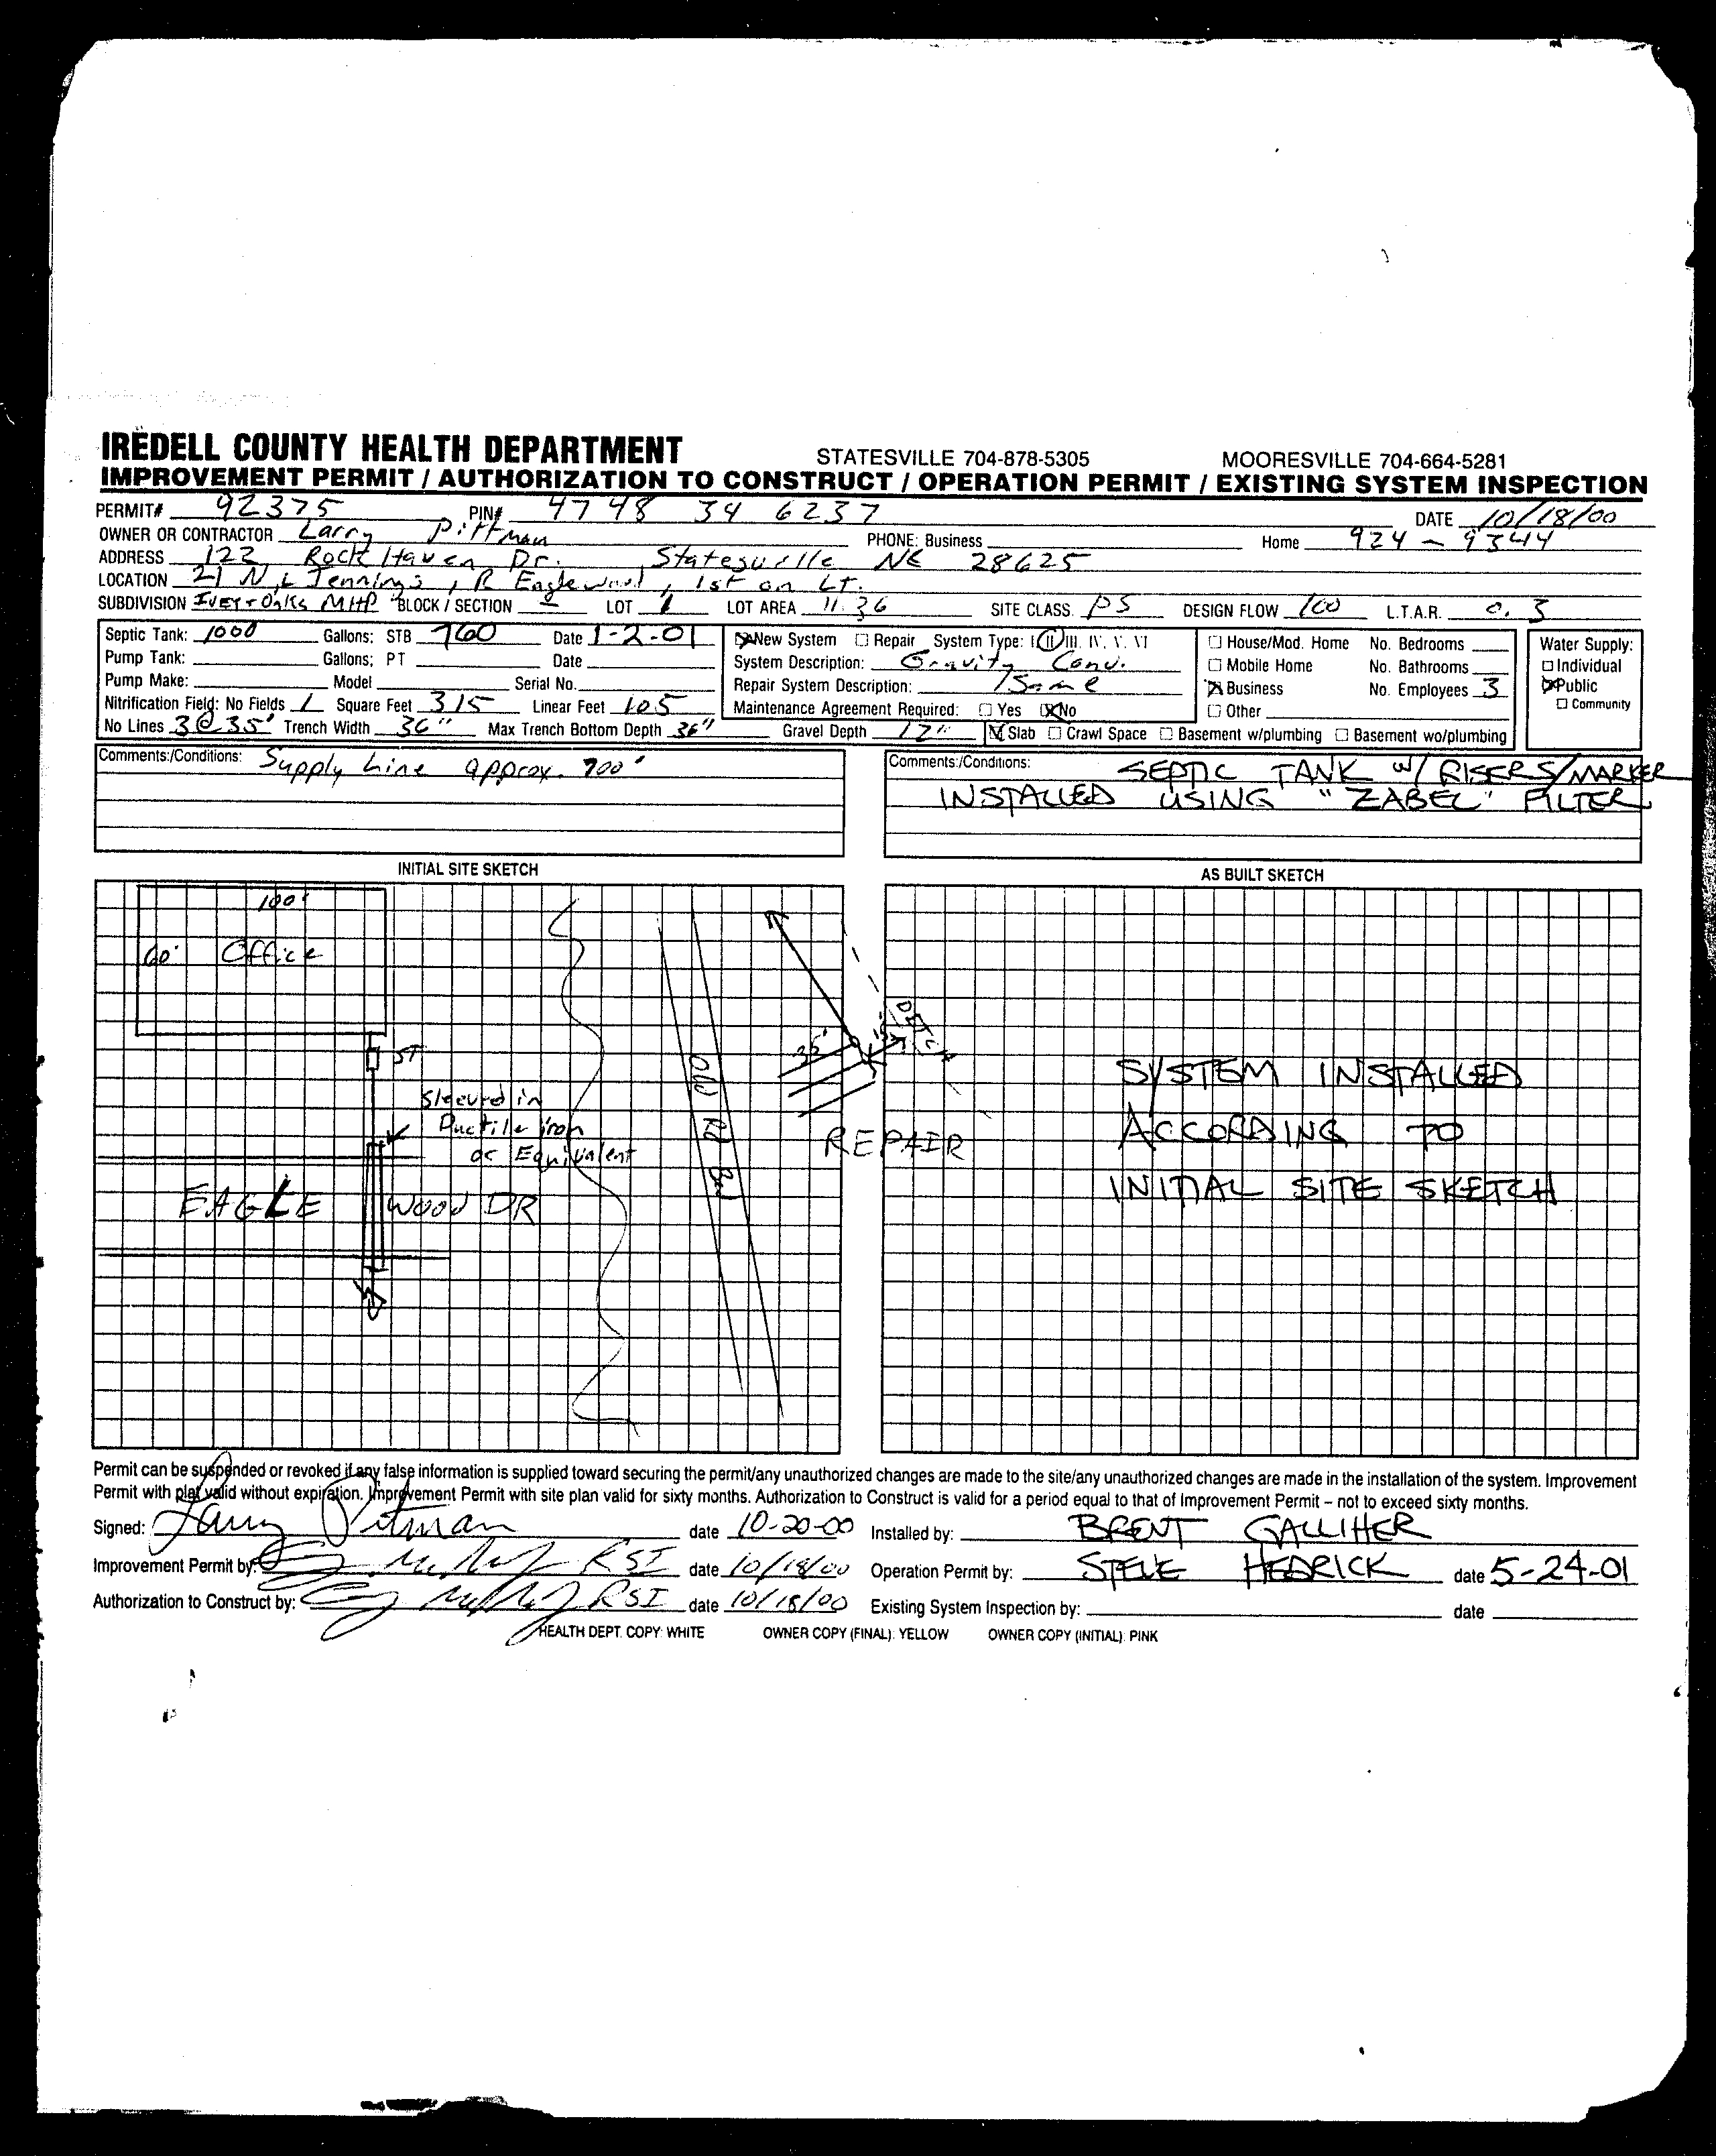 IREDELL COUNTY HEALTH DEPARTMENT STATESVILLE 704-878-5305 MOORESVILLE 704-664-5281
IMPROVEMENT PERMIT / AUTHORIZATION TO CONSTRUCT / OPERATION PERMIT / EXISTING SYSTEM INSPECTION
PERMIT# 92375 PIN# 4748 34 6237 DATE 10/18/00
OWNER OR CONTRACTOR Larry Pittman PHONE: Business Home 924-9344
ADDRESS 122 Rock Haven Dr. Statesville NC 28625
LOCATION 21 N, L Jennings, R Eaglewood, 1st on LT.
SUBDIVISION Ivey-Oaks MHP BLOCK / SECTION - LOT 1 LOT AREA 11.36 SITE CLASS. PS DESIGN FLOW 100 L.T.A.R. 0.3
Septic Tank: 1000 Gallons: STB 760 Date 1-2-01 New System Repair System Type: I II III. IV. V. VI House/Mod. Home No. Bedrooms Water Supply:
Pump Tank: Gallons; PT Date System Description: Gravity Conv. Mobile Home No. Bathrooms Individual
Pump Make: Model Serial No. Repair System Description: /Same Business No. Employees 3 Public
Nitrification Field: No Fields 1 Square Feet 315 Linear Feet 105 Maintenance Agreement Required: Yes No Other Community
No Lines 3@35' Trench Width 36" Max Trench Bottom Depth 36" Gravel Depth 12" Slab Crawl Space Basement w/plumbing Basement wo/plumbing
Comments:/Conditions: Supply Line approx. 700'
Comments:/Conditions: SEPTIC TANK W/ RISERS/MARKER
INSTALLED USING "ZABEL" FILTER
INITIAL SITE SKETCH
100'
60' Office
ST
Sleeved in
Ductile iron
or Equivalent
EAGLE WOOD DR
Old Rd Bed
35'
DITCH
REPAIR
AS BUILT SKETCH
SYSTEM INSTALLED
ACCORDING TO
INITIAL SITE SKETCH
Permit can be suspended or revoked if any false information is supplied toward securing the permit/any unauthorized changes are made to the site/any unauthorized changes are made in the installation of the system. Improvement
Permit with plat valid without expiration. Improvement Permit with site plan valid for sixty months. Authorization to Construct is valid for a period equal to that of Improvement Permit – not to exceed sixty months.
Signed: Larry Pittman date 10-20-00 Installed by: BRENT GALLIHER
Improvement Permit by: RSI date 10/18/00 Operation Permit by: STEVE HEDRICK date 5-24-01
Authorization to Construct by: RSI date 10/18/00 Existing System Inspection by: date
HEALTH DEPT. COPY: WHITE OWNER COPY (FINAL): YELLOW OWNER COPY (INITIAL): PINK